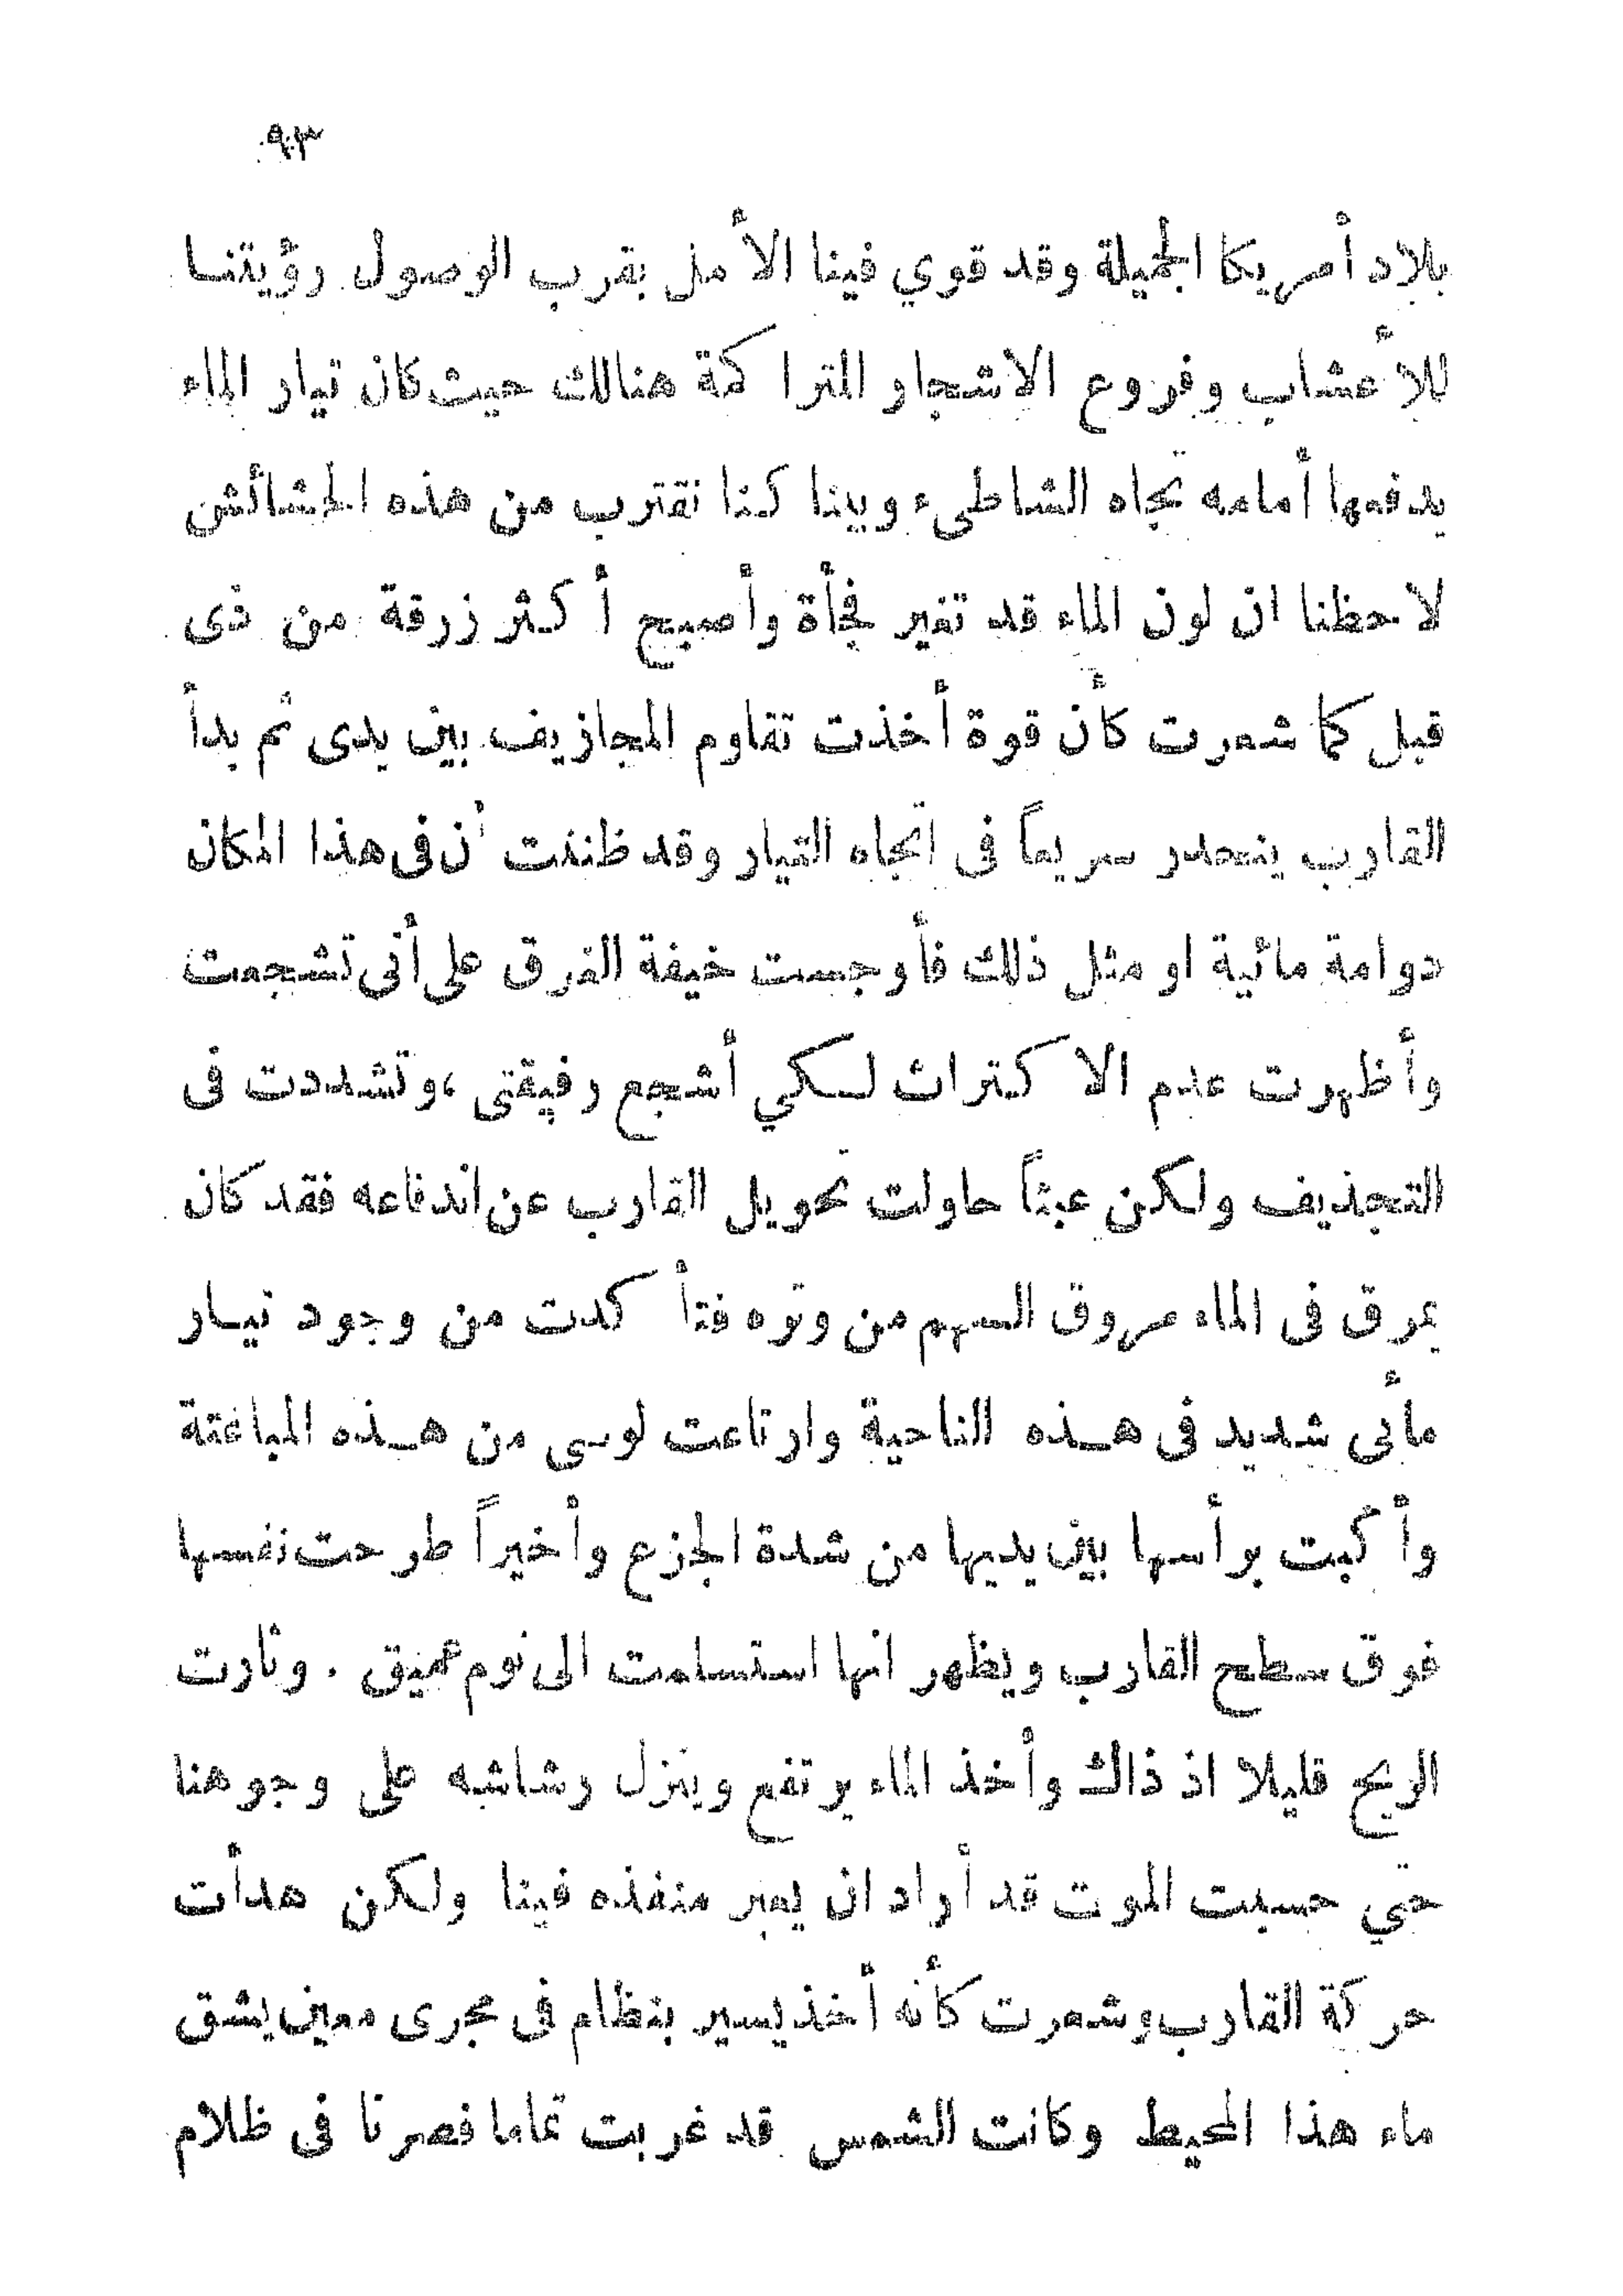 ٩٣
بلاد أمريكا الجميلة وقد قوي فينا الأمل بقرب الوصول رؤيتنا
للأعشاب وفروع الاشجار المتراكمة هنالك حيث كان تيار الماء
يدفعها أمامه تجاه الشاطىء وبينا كنا نقترب من هذه الحشائش
لاحظنا ان لون الماء قد تغير فجأة وأصبح أكثر زرقة من ذى
قبل كما شعرت كأن قوة أخذت تقاوم المجازيف بين يدى ثم بدأ
القارب ينحدر سريعاً فى اتجاه التيار وقد ظننت أن فى هذا المكان
دوامة مائية او مثل ذلك فأوجست خيفة الغرق على أنى تشجعت
وأظهرت عدم الاكتراث لكي أشجع رفيقتى ، وتشددت فى
التجذيف ولكن عبثاً حاولت تحويل القارب عن اندفاعه فقد كان
يمرق فى الماء مروق السهم من وتره فتأكدت من وجود تيار
مأئى شديد فى هذه الناحية وارتاعت لوسى من هذه المباغتة
وأكبت برأسها بين يديها من شدة الجزع وأخيراً طرحت نفسها
فوق سطح القارب ويظهر انها استسلمت الى نوم عميق . وثارت
الريح قليلا اذ ذاك وأخذ الماء يرتفع وينزل رشاشه على وجوهنا
حتي حسبت الموت قد أراد ان يعبر منفذه فينا ولكن هدأت
حركة القارب وشعرت كأنه أخذ يسير بنظام فى مجرى معين يشق
ماء هذا المحيط وكانت الشمس قد غربت تماما فصرنا فى ظلام